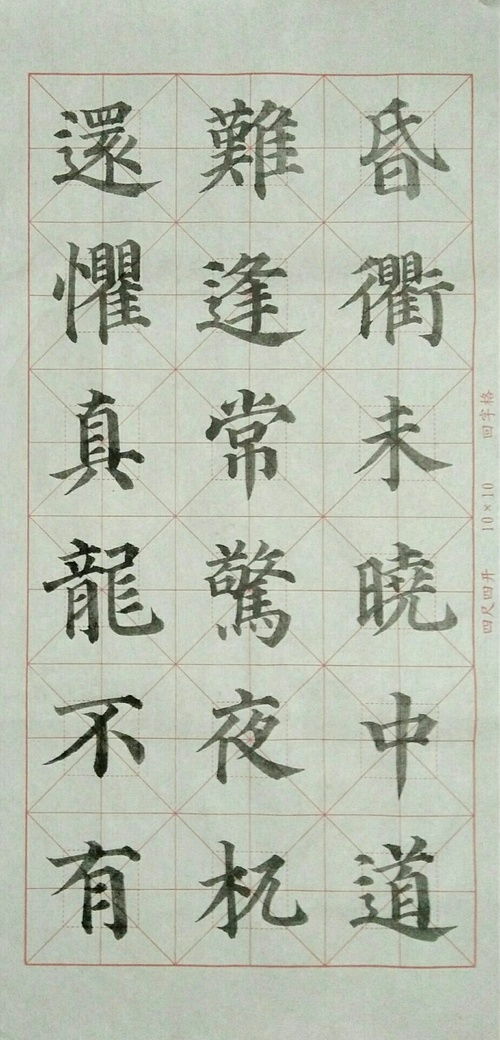 昏衢未曉中道
難逢常驚夜杌
還懼真龍不有
回字格 10×10 四尺四开